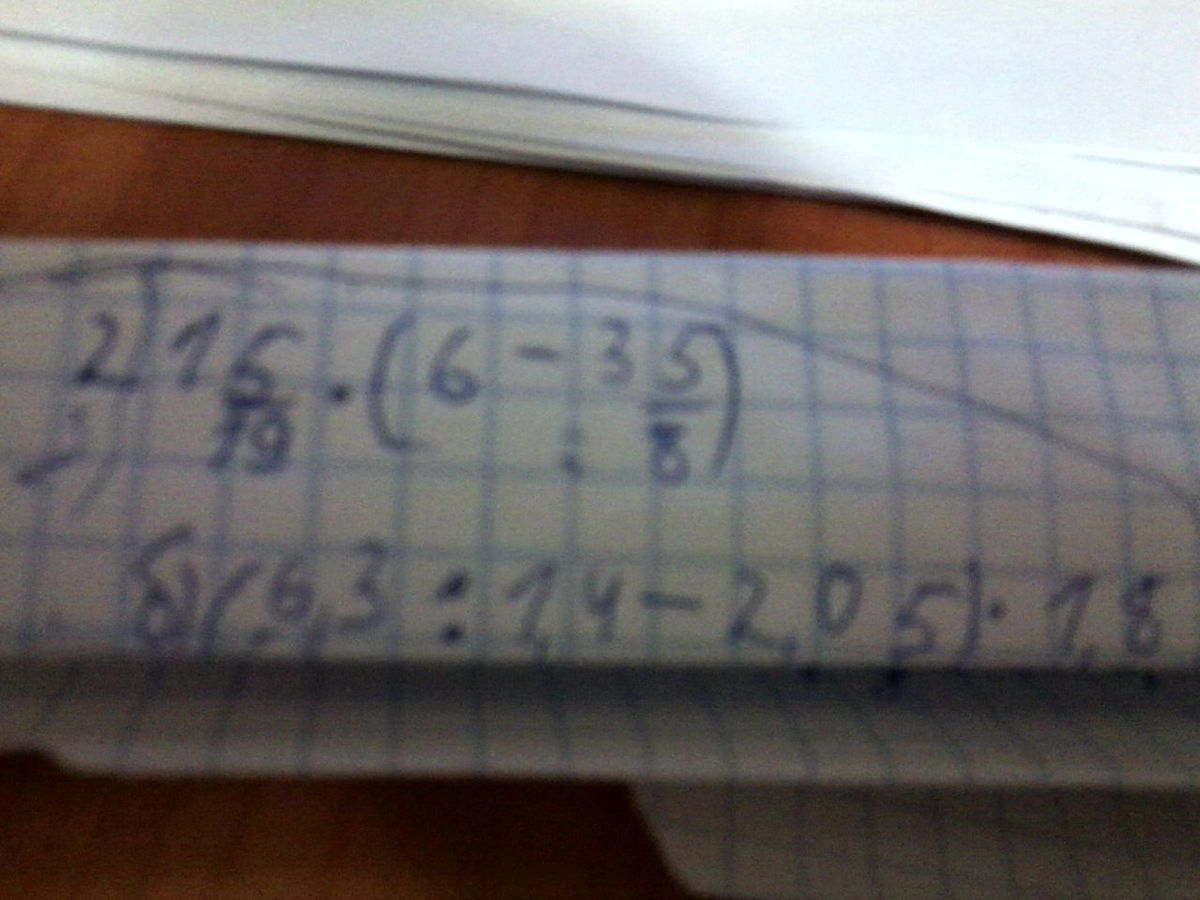 2) 1 5/19 · (6 - 3 5/8)
б) (6,3 : 1,4 - 2,05) · 1,8